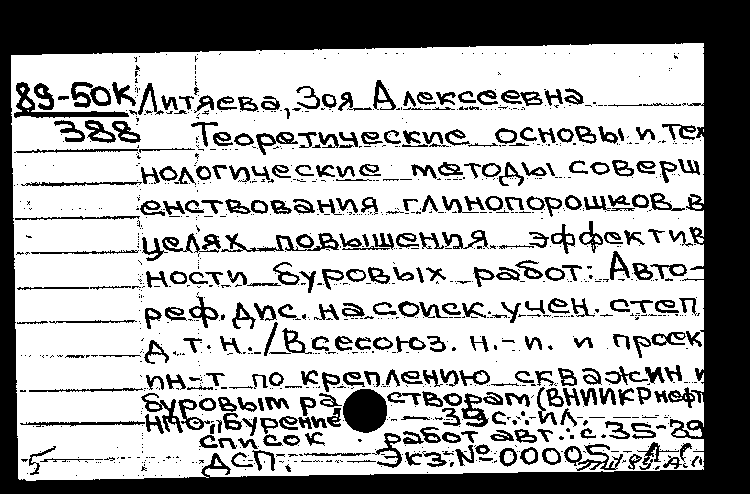 89-50К Литяева, Зоя Алексеевна
388 Теоретические основы и тех
нологические методы соверш
енствования глинопорошков в
целях повышения эффектив
ности буровых работ: Авто-
реф. дис. на соиск. учен. степ
д.т.н. / Всесоюз. н.-и. и проек
ин-т по креплению скважин и
буровым ра створам (ВНИИКРнефт
НПО „Бурение" — 39 с.: ил.
список работ авт.: с. 35-39
5 ДСП. Экз. № 00005